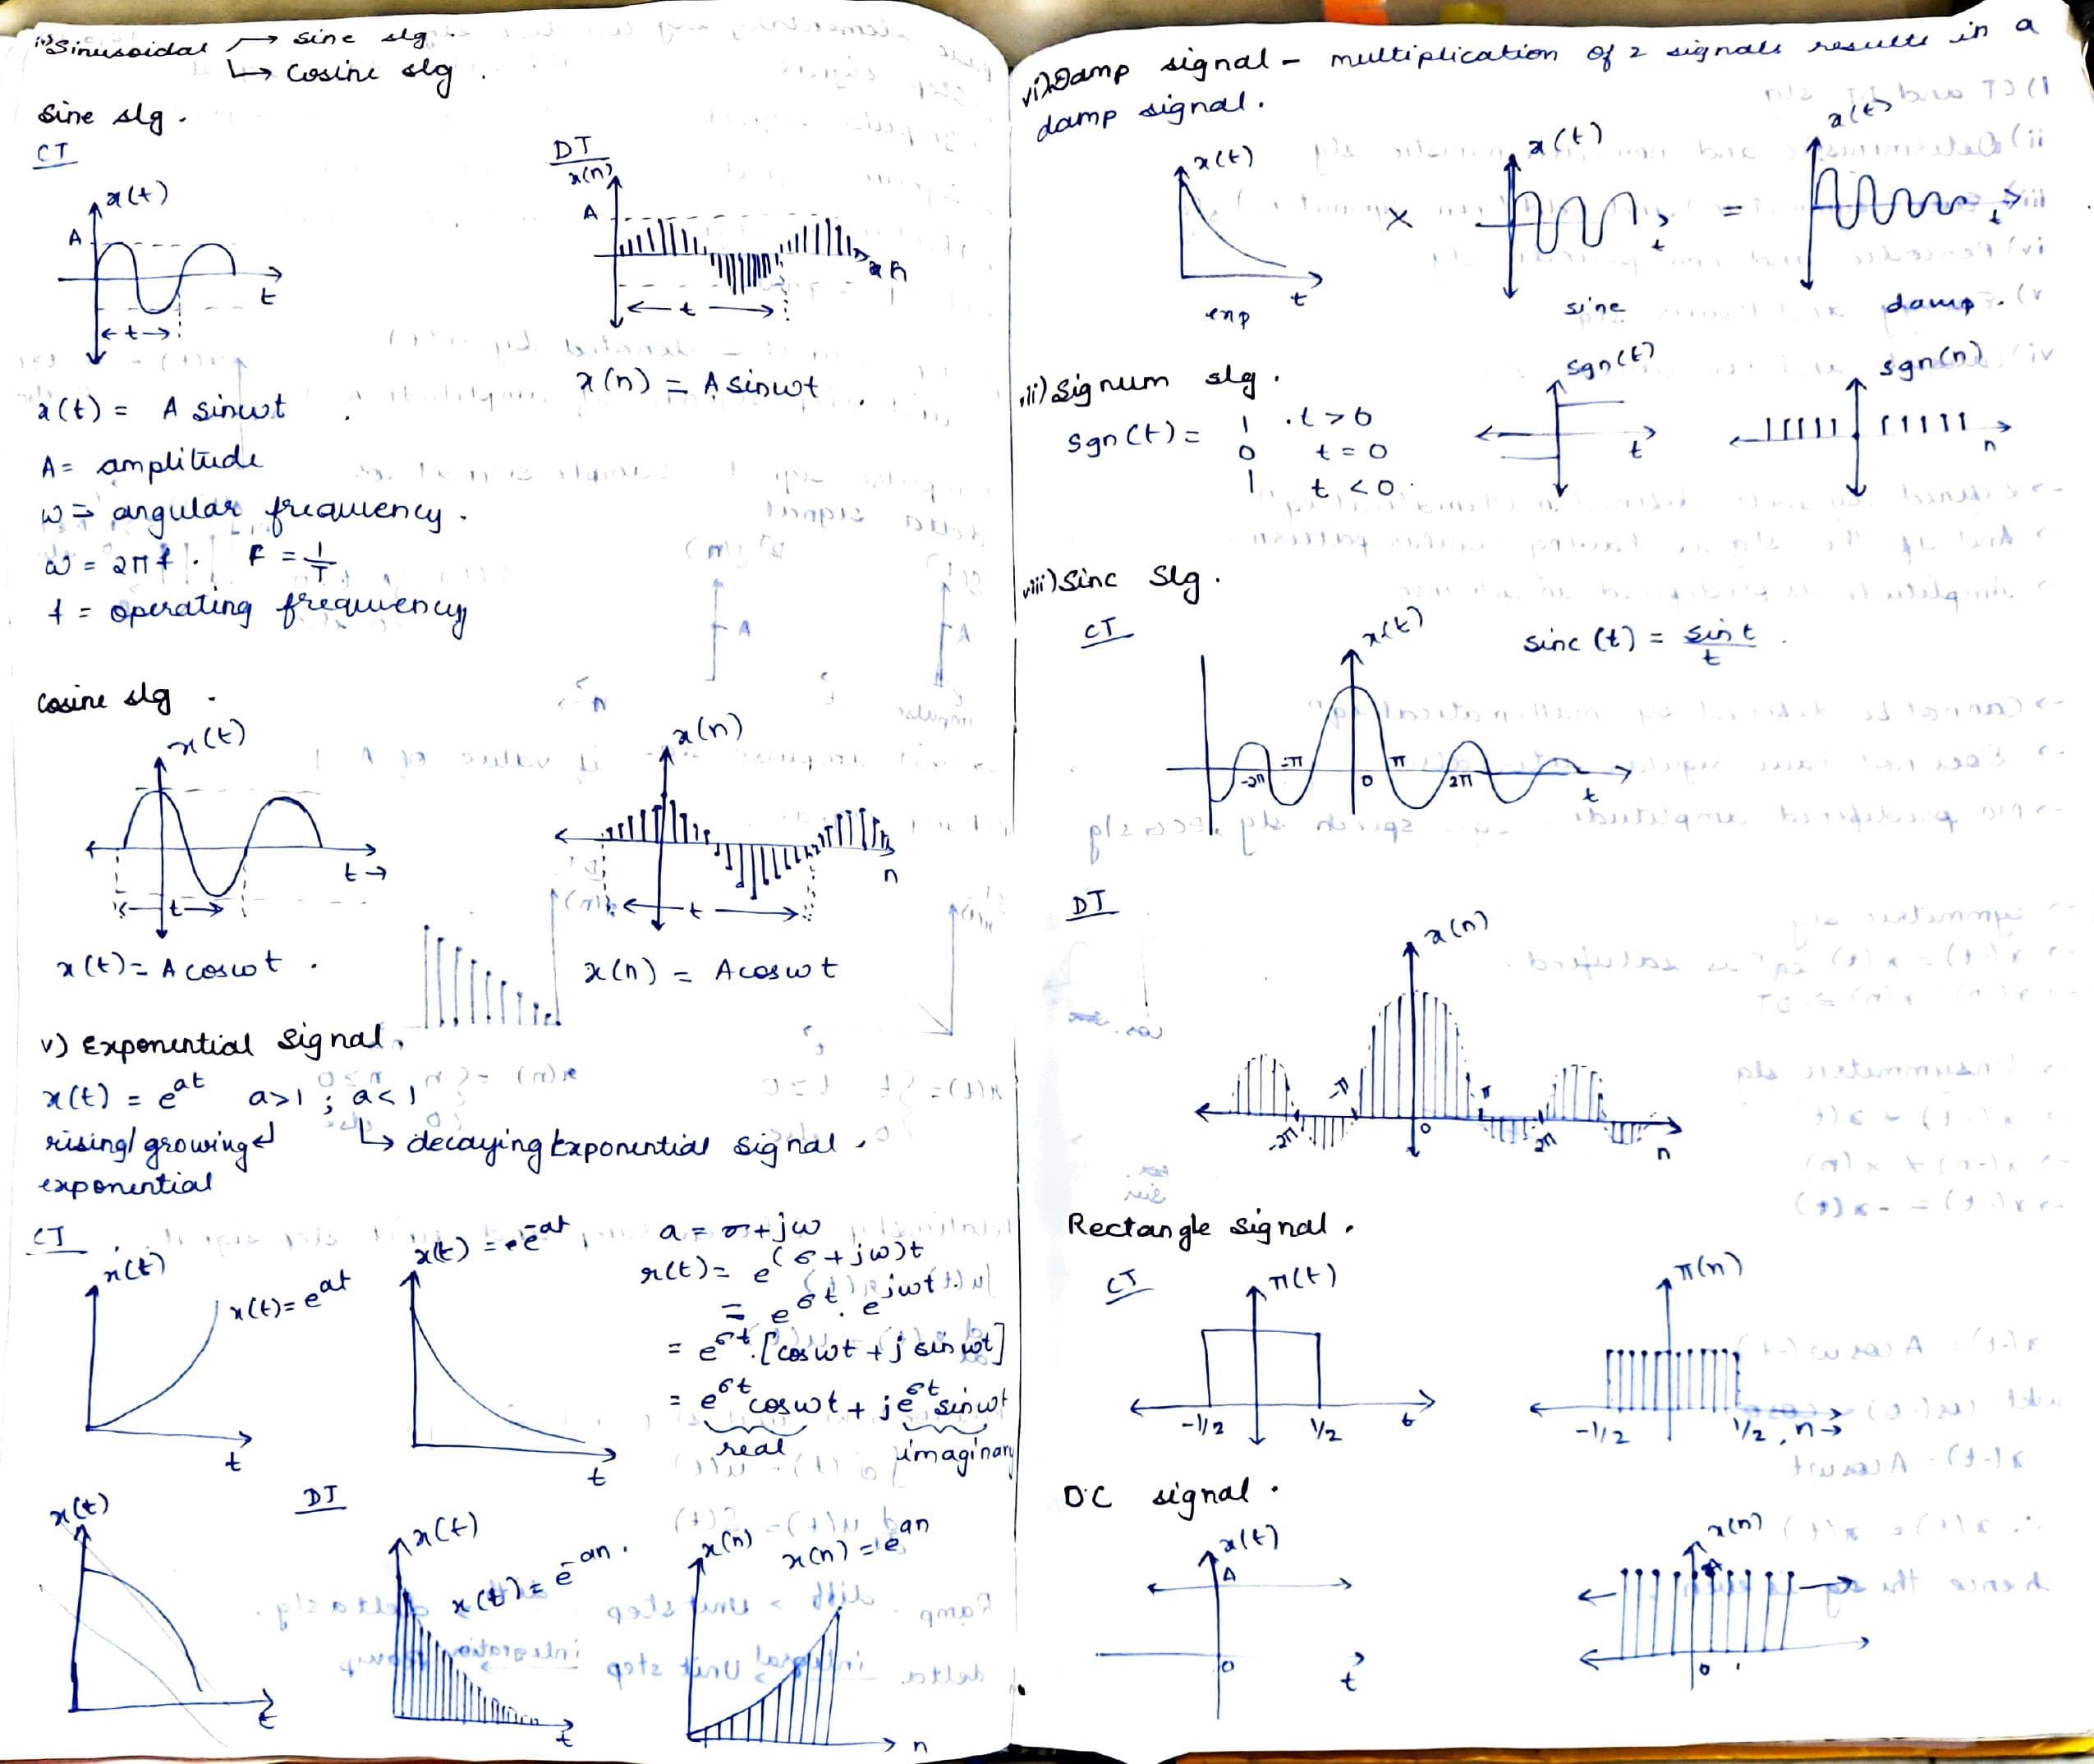 iv) Sinusoidal → sine slg.
↳ cosine slg.
sine slg.
CT
x(t)
A
t
←t→
DT
x(n)
A
n
← t →
x(t) = A sinwt
x(n) = A sinwt
A = amplitude
w = angular frequency.
ω = 2πf. F = 1/T
f = operating frequency
cosine slg
x(t)
t →
← t →
x(n)
n
← t →
x(t) = A coswt.
x(n) = A coswt
v) Exponential signal.
x(t) = e^at a>1 ; a<1
rising/growing ↲ ↳ decaying Exponential signal.
exponential
CT
x(t)
x(t) = e^at
t
x(t) = e^-at
t
a = σ+jω
x(t) = e^(σ+jω)t
= e^σt . e^jωt
= e^σt . [cos ωt + j sin ωt]
= e^σt cosωt + je^σt sinωt
real imaginary
x(t)
t
DT
x(t)
x(t) = e^-an.
t
x(n)
x(n) = e^an
n
vi) Damp signal - multiplication of 2 signals results in a
damp signal.
x(t) × x(t) = x(t)
t t t
exp sine damp.
vii) Signum slg.
sgn(t) = 1 t>0
0 t = 0
1 t <0.
sgn(t)
t
sgn(n)
n
viii) Sinc slg.
CT
x(t)
sinc (t) = sin t / t.
-2π -π 0 π 2π
t
DT
x(n)
-2π -π 0 π 2π
n
Rectangle signal.
CT
π(t)
-1/2 1/2 t
π(n)
-1/2 1/2, n→
DC signal.
x(t)
A
0
t
x(n)
A
0 1